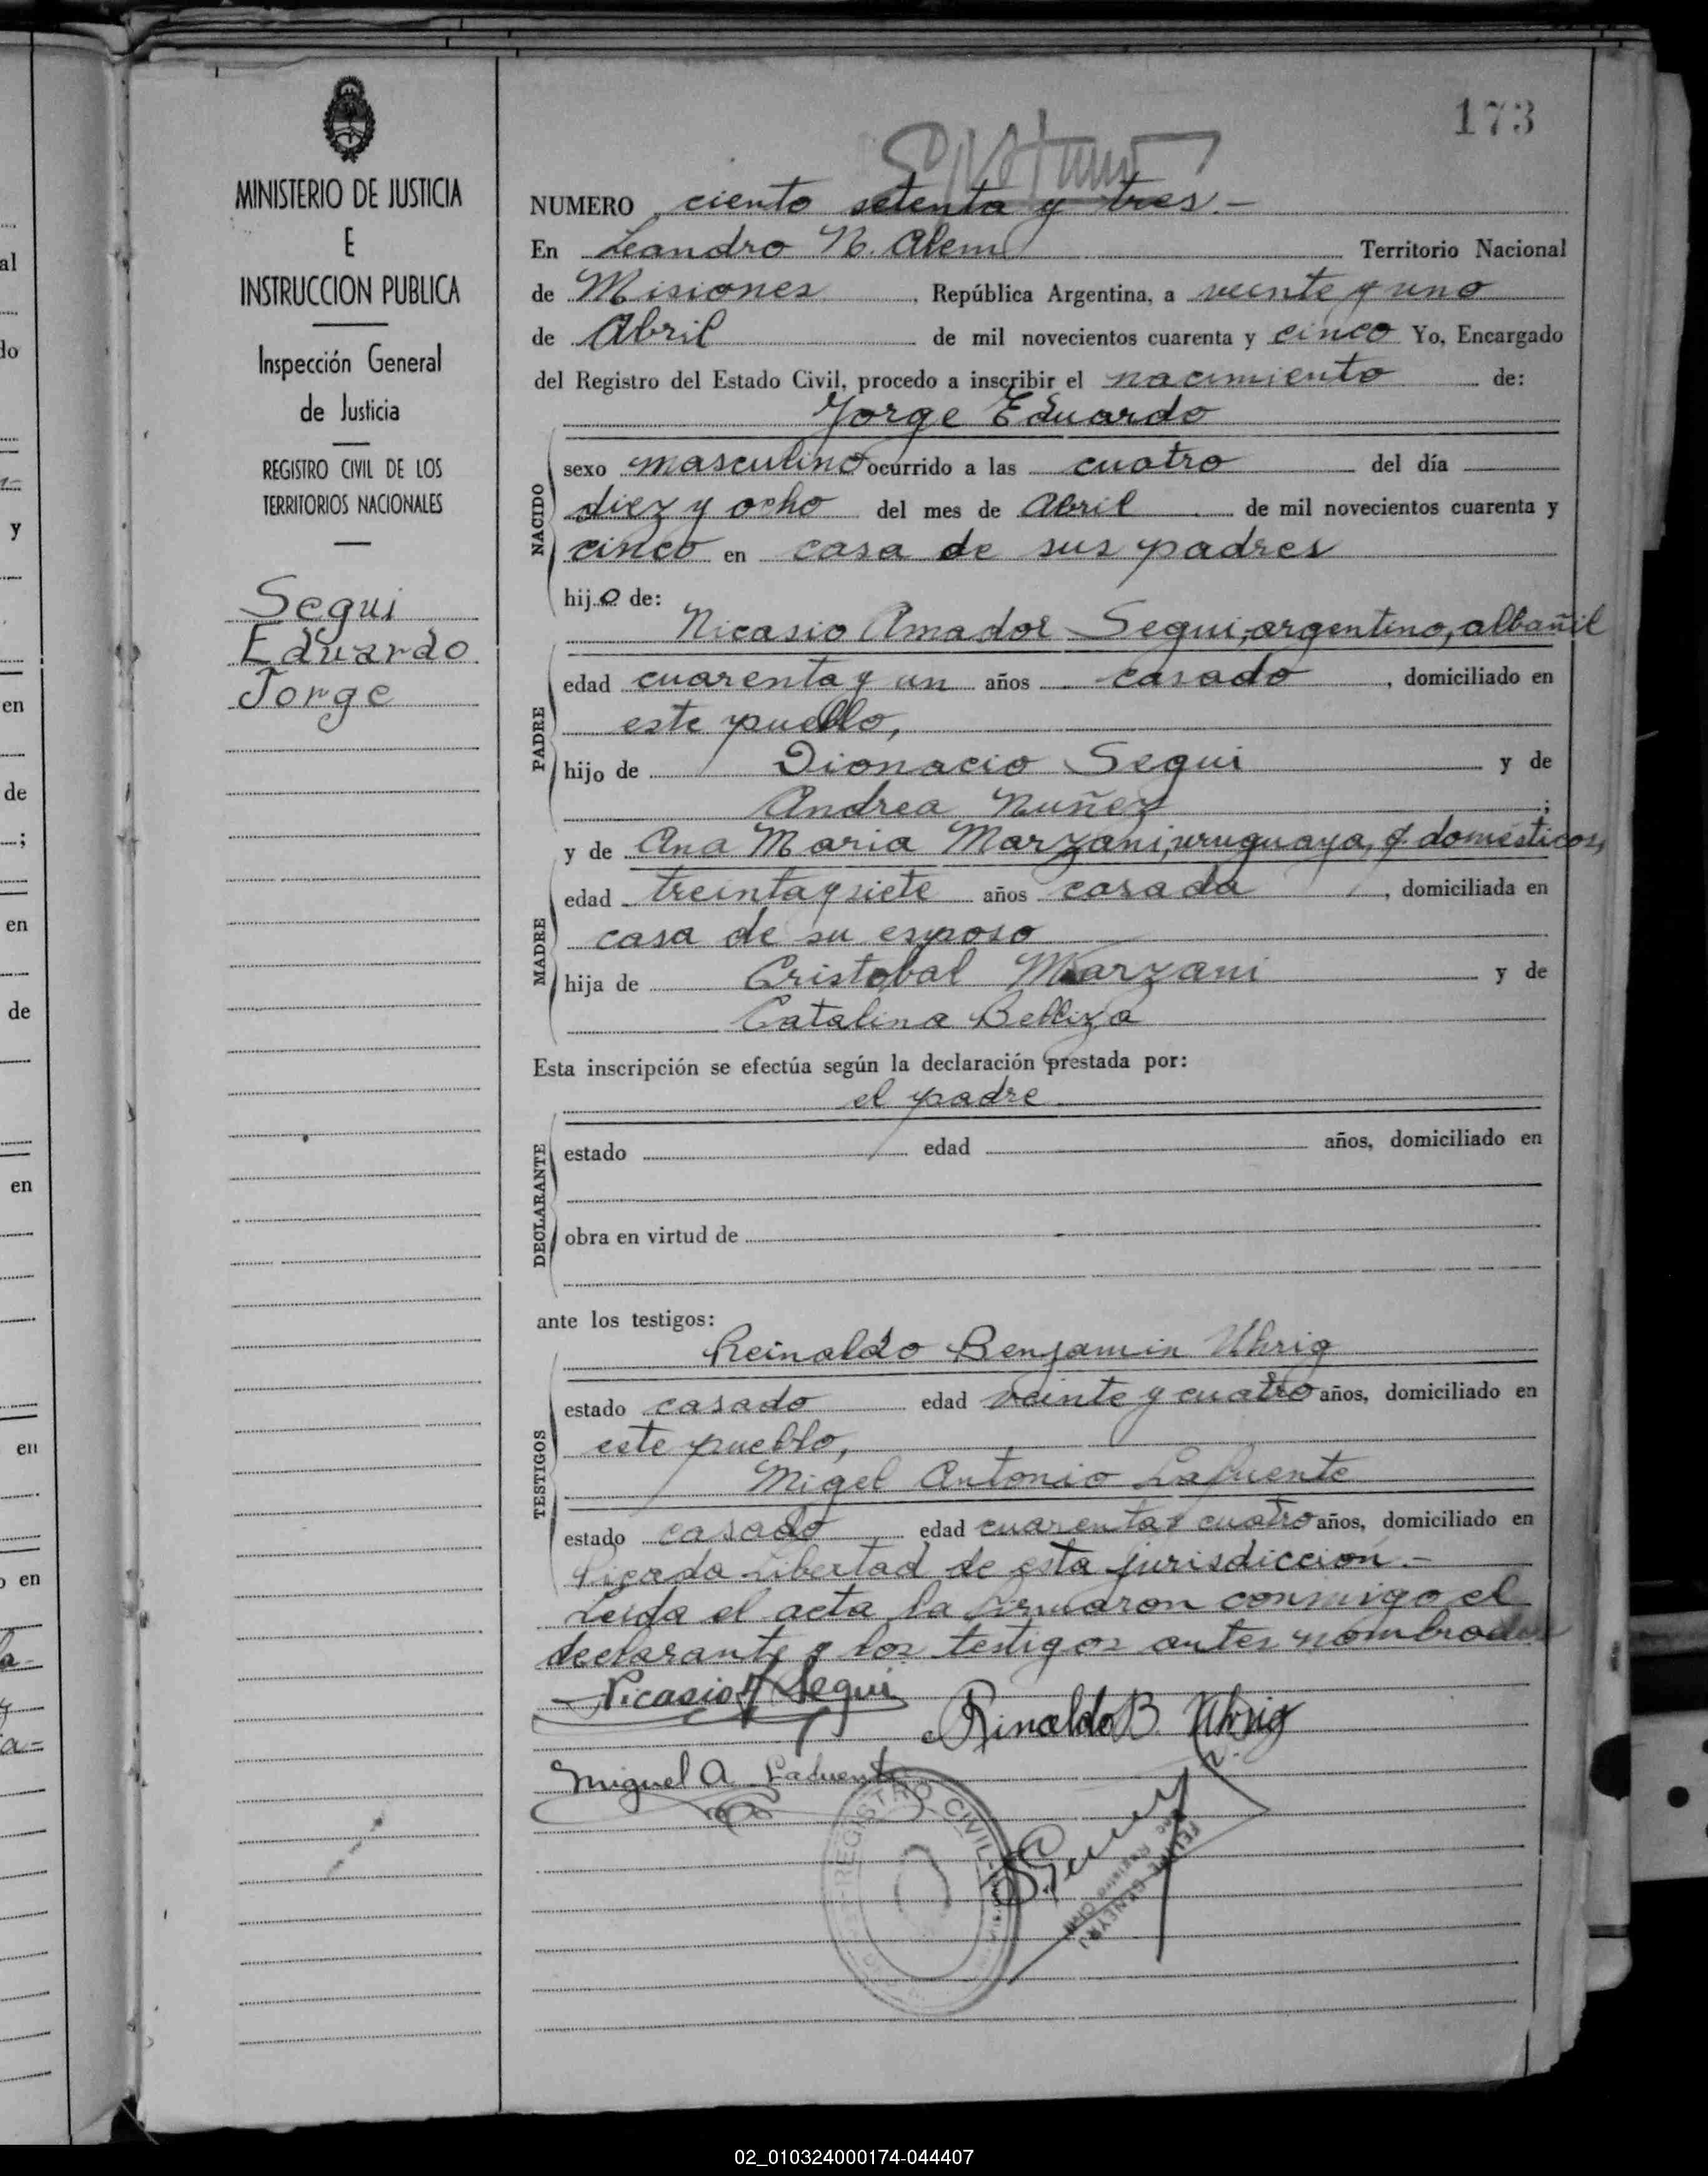 173
MINISTERIO DE JUSTICIA
E
INSTRUCCION PUBLICA
Inspección General
de Justicia
REGISTRO CIVIL DE LOS
TERRITORIOS NACIONALES
Segui
Eduardo
Jorge
NUMERO ciento setenta y tres.-
En Leandro N. Alem Territorio Nacional
de Misiones, República Argentina, a veinte y uno
de Abril de mil novecientos cuarenta y cinco Yo, Encargado
del Registro del Estado Civil, procedo a inscribir el nacimiento de:
Jorge Eduardo
NACIDO
sexo masculino ocurrido a las cuatro del día
diez y ocho del mes de Abril de mil novecientos cuarenta y
cinco en casa de sus padres
hijo de:
Nicasio Amador Segui, argentino, albañil
PADRE
edad cuarenta y un años casado, domiciliado en
este pueblo,
hijo de Dionacio Segui y de
Andrea Nuñez;
y de Ana Maria Marzani, uruguaya, q. domésticos,
MADRE
edad treinta y siete años casada, domiciliada en
casa de su esposo
hija de Cristobal Marzani y de
Catalina Belliza
Esta inscripción se efectúa según la declaración prestada por:
el padre
DECLARANTE
estado edad años, domiciliado en
obra en virtud de
ante los testigos:
Reinaldo Benjamin Uhrig
TESTIGOS
estado casado edad veinte y cuatro años, domiciliado en
este pueblo,
Migel Antonio Lafuente
estado casado edad cuarenta y cuatro años, domiciliado en
Picada Libertad de esta jurisdicción.-
Leida el acta la firmaron conmigo el
declarante y los testigos antes nombrados
Nicasio A Segui
Rinaldo B. Uhrig
Miguel A Lafuente
REGISTRO CIVIL
al
do
y
en
de
;
en
de
en
en
en
02_010324000174-044407